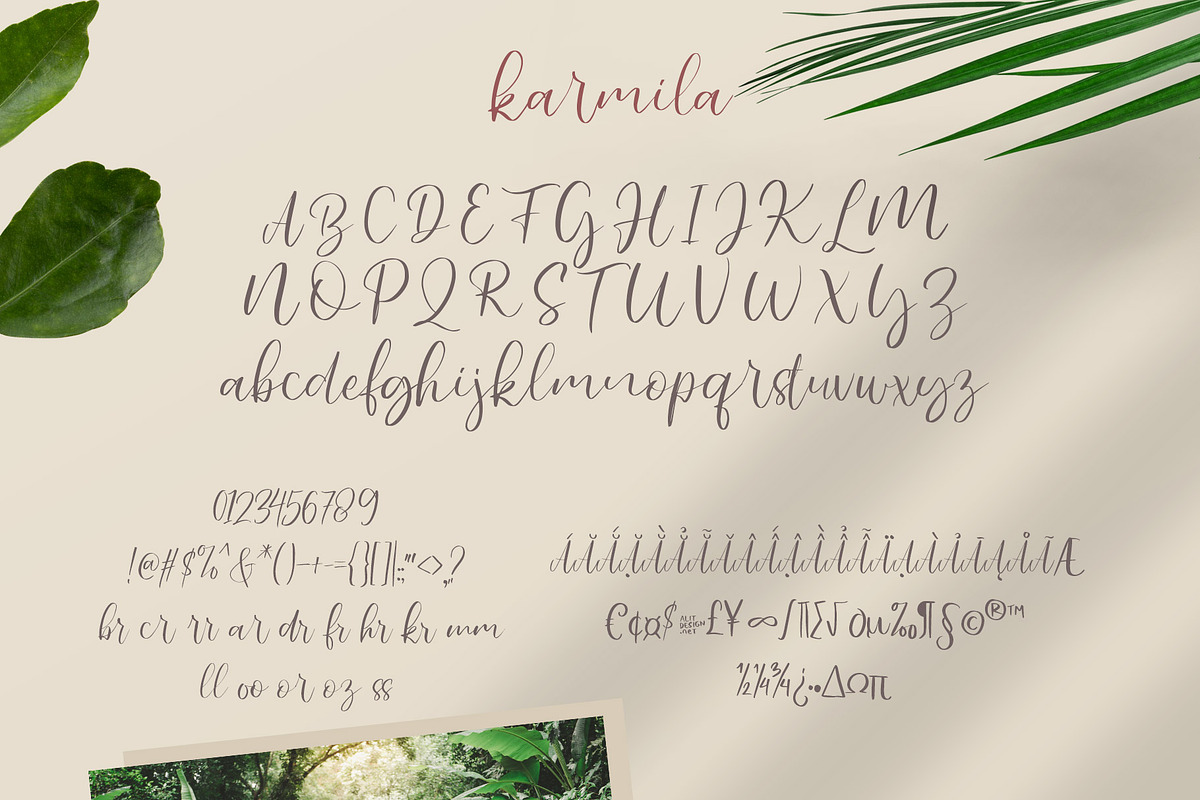 karmila
ABCDEFGHIJKLM
NOPQRSTUVWXYZ
abcdefghijklmnopqrstuvwxyz
0123456789
!@#$%^&*()-+-={}[]|:;"'<>,.?
br cr rr ar dr fr hr kr mm
ll oo or oz ss
ÁĂẮẶẰẲẴǍÂẤẬẦẨẪÄẠÀẢĀĄÅÃÆ
€¢¤$ ALIT DESIGN .NET £¥ ∞∫∏∑√ ∂µ‰¶§©®™
½¼¾¿••∆Ωπ